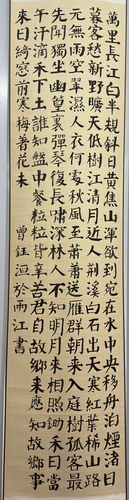 萬里長江白半規斜日黄焦山渾欲到宛在水中央移舟泊煙渚日
暮客愁新野曠天低樹江清月近人荆溪白石出天寒紅葉稀山路
元無雨空翠濕人衣何處秋風至蕭蕭送雁群朝来入庭樹孤客最
先聞獨坐幽篁裏彈琴復長嘯深林人不知明月来相照鋤禾日當
午汗滴禾下土誰知盤中餐粒粒皆辛苦君自故鄉来應知故鄉事
来日綺窓前寒梅著花未 曾鈺洹於兩江書